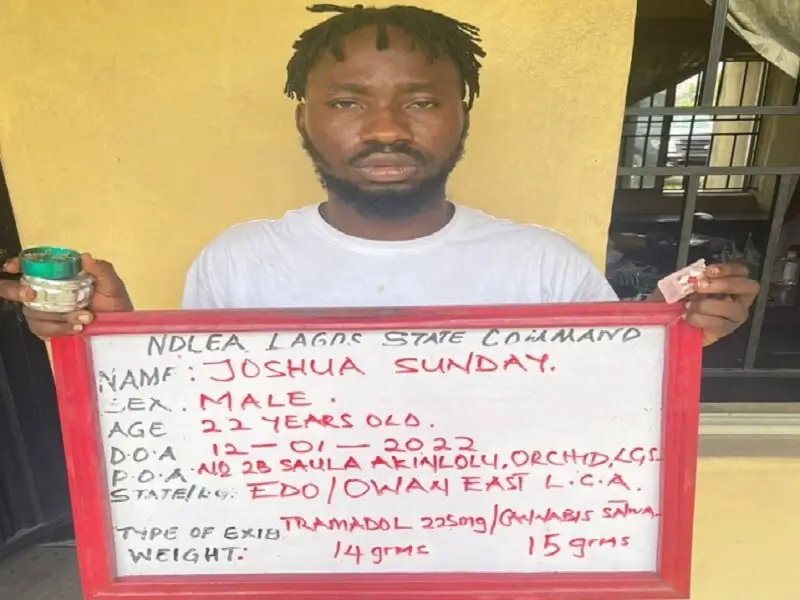 NDLEA LAGOS STATE COMMAND
NAME: JOSHUA SUNDAY.
SEX. MALE.
AGE 22 YEARS OLD.
D.O.A 12-01-2022
P.O.A. NO 2B SAULA AKINLOLU, ORCHID, LGS
STATE/LG. EDO/OWAN EAST L.G.A.
TYPE OF EXIB TRAMADOL 225mg/CANNABIS SATIVA.
WEIGHT: 14 grms 15 grms